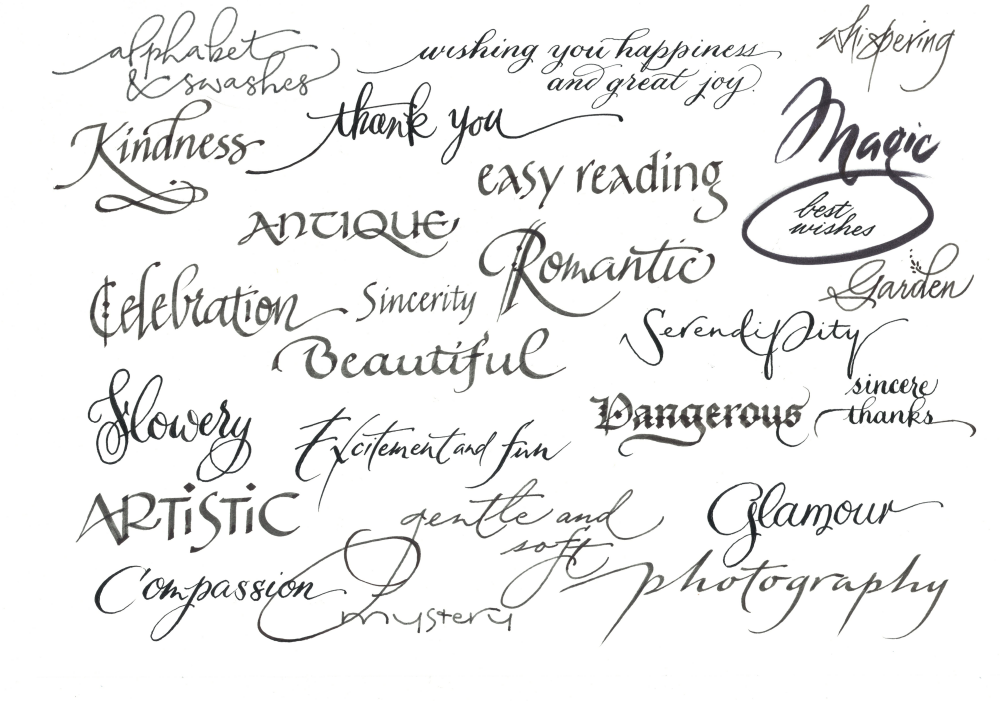 alphabet
& swashes
wishing you happiness
and great joy.
whispering
Kindness
thank you
Magic
easy reading
best
wishes
ANTIQUE
Romantic
Garden
Celebration
Sincerity
Serendipity
Beautiful
Flowery
Excitement and fun
Dangerous
sincere
thanks
ARTiSTiC
gentle and
soft
Glamour
Compassion
mystery
photography